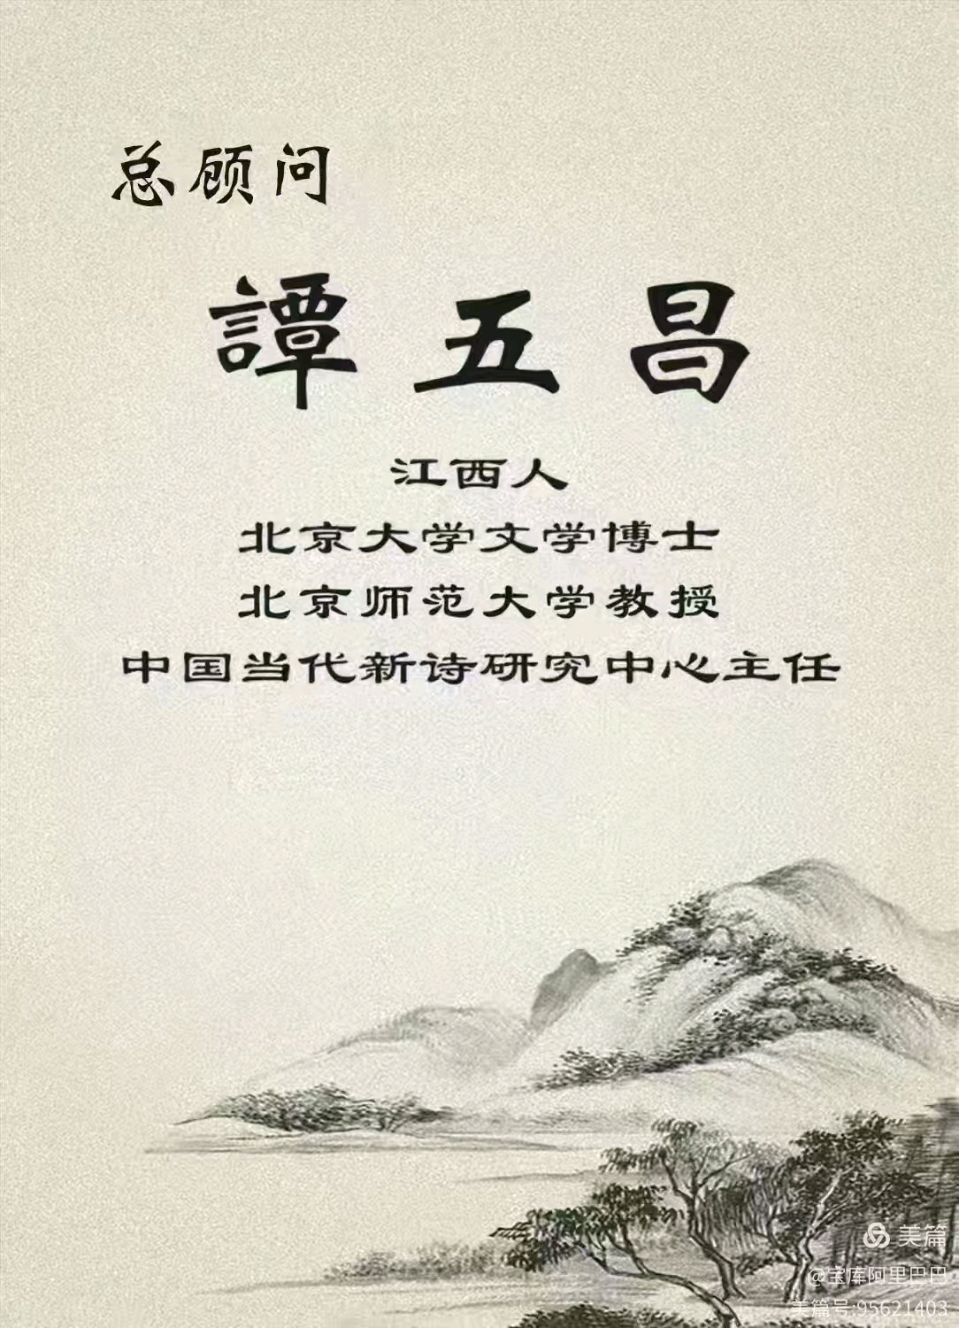 总顾问
譚五昌
江西人
北京大学文学博士
北京师范大学教授
中国当代新诗研究中心主任
美篇
@宝库阿里巴巴
美篇号:95621403